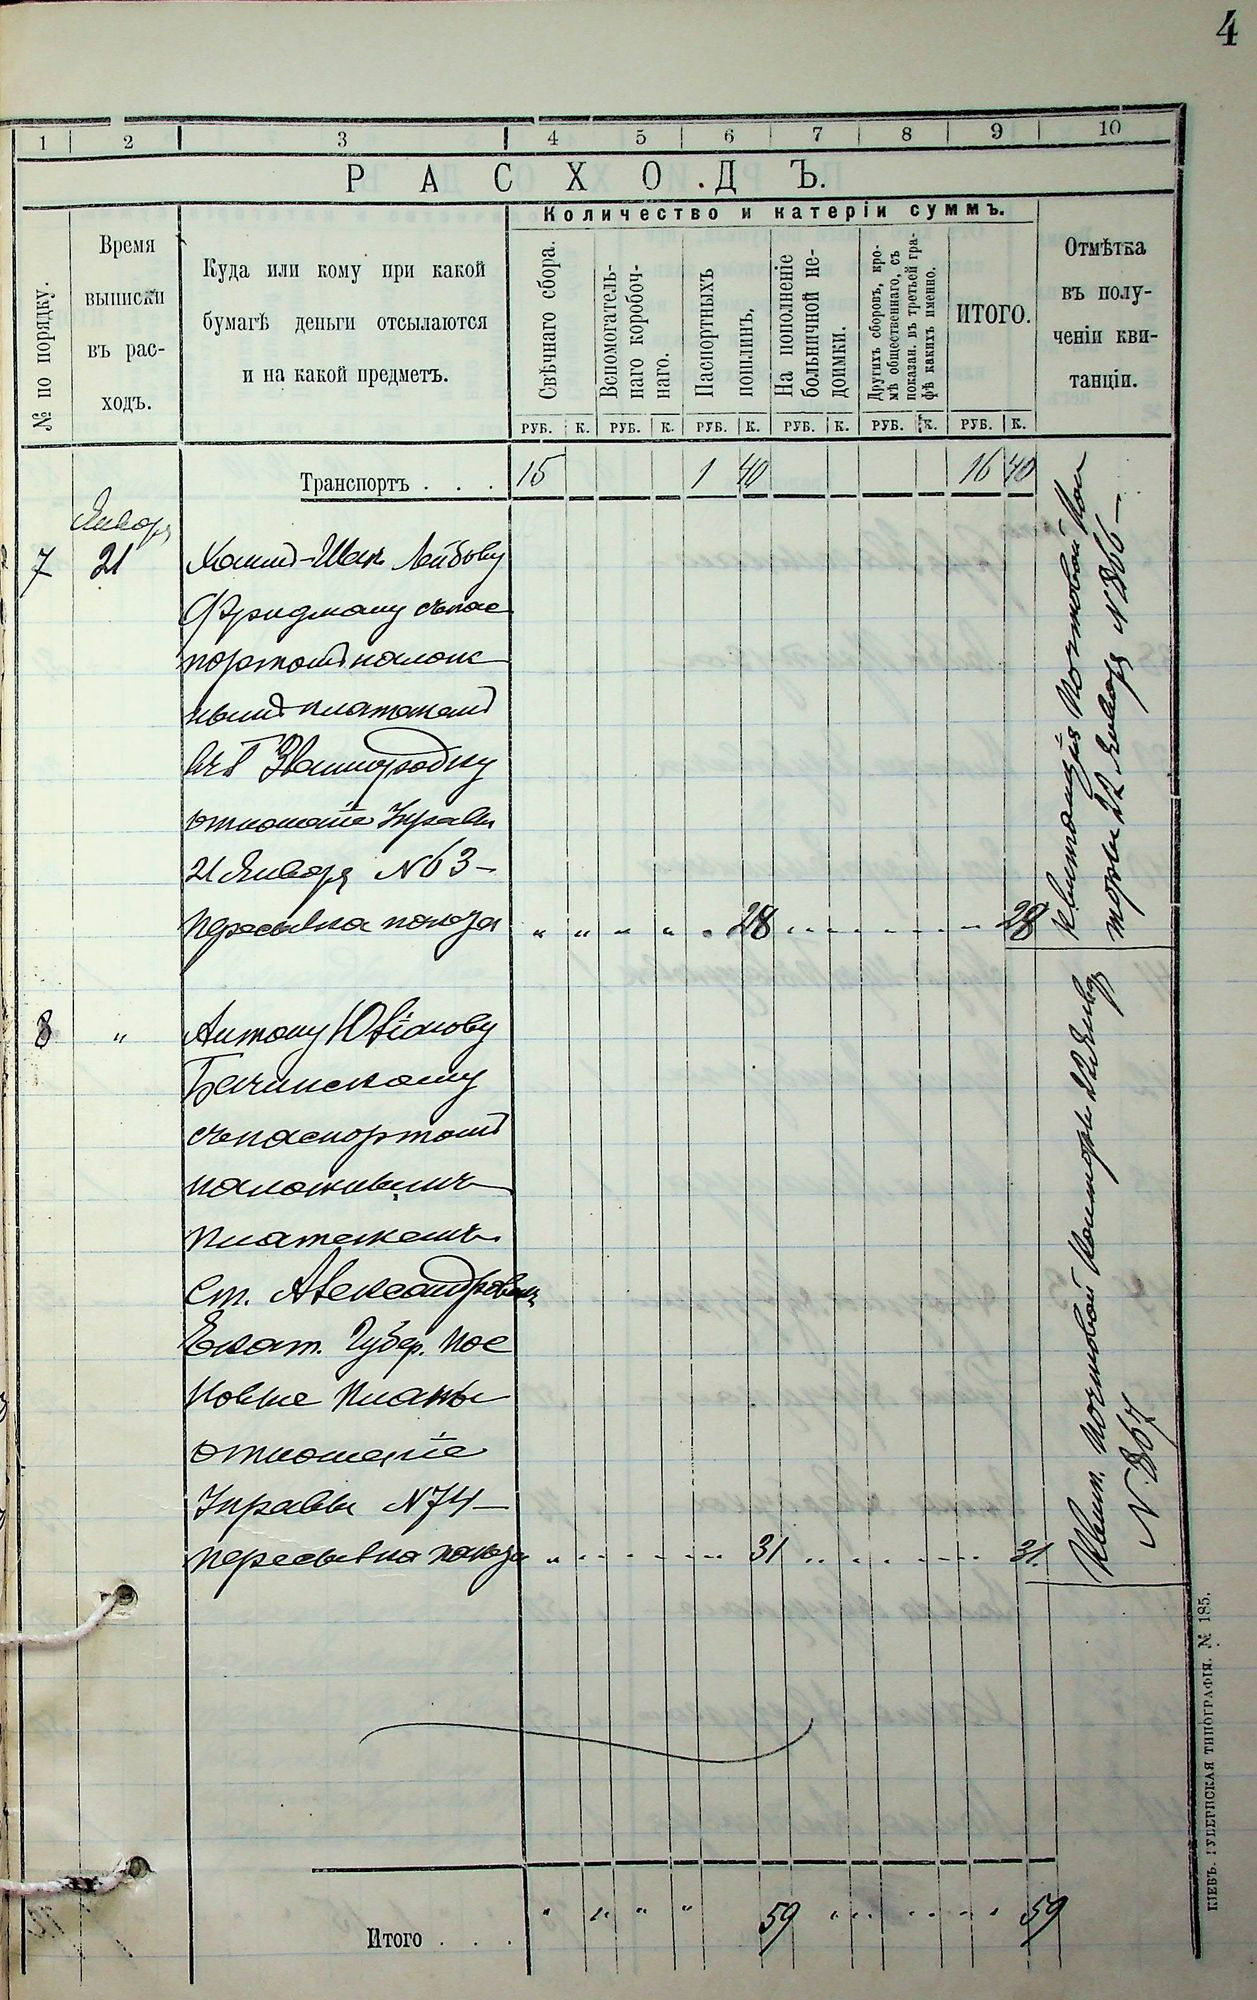 4
1 2 3 4 5 6 7 8 9 10
РАСХОДЪ.
Количество и катеріи суммъ.
№ по порядку.
Время
выписки
въ рас-
ходъ.
Куда или кому при какой
бумагѣ деньги отсылаются
и на какой предметъ.
Свѣчнаго сбора.
Вспомогатель-
наго коробоч-
наго.
Паспортныхъ
пошлинъ,
На пополненіе
больничной не-
доимки.
Другихъ сборовъ, кро-
мѣ общественнаго, съ
показан. въ третьей гра-
фѣ какихъ именно.
ИТОГО.
Отмѣтка
въ полу-
ченіи кви-
танціи.
РУБ. К. РУБ. К. РУБ. К. РУБ. К. РУБ. К. РУБ. К.
Транспортъ . . . 15 1 40 16 40
Января
7 21 Лейбову
Фридману съ пас
портомъ налож
нымъ платежомъ
въ г Звенигородку
отношеніе Управы
21 Января N 63 —
пересылка показа „ „ „ „ „ 28 „ „ „ „ „ 28
Квитанція Почтовой Кон
торы 22 Января N 866 —
8 „ Антону
Бачинскому
съ паспортомъ
наложнымъ
платежемъ
ст. Александровск
Екат. Губер. пос
Новые Планы
отношеніе
Управы N 74 —
пересылка показа „ „ „ „ „ 31 „ „ „ „ „ 31.
Квит. Почтовой Конторы 22 Января
N 867
Итого . . . „ „ „ „ 59 „ „ „ „ „ „ 59
КІЕВЪ. ГУБЕРНСКАЯ ТИПОГРАФІЯ. № 185.